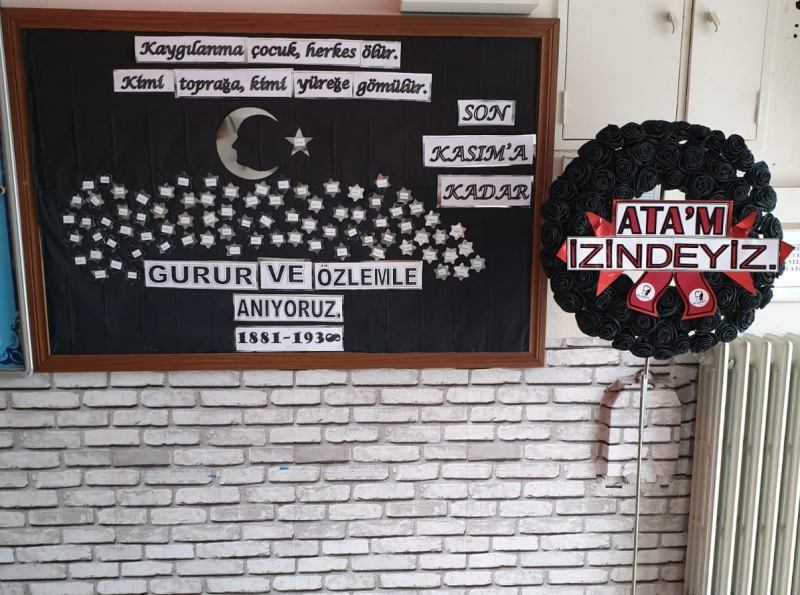 Kaygılanma çocuk, herkes ölür.
Kimi toprağa, kimi yüreğe gömülür.
SON
KASIM'A
KADAR
GURUR VE ÖZLEMLE
ANIYORUZ.
1881-193∞
ATA'M
İZİNDEYİZ.